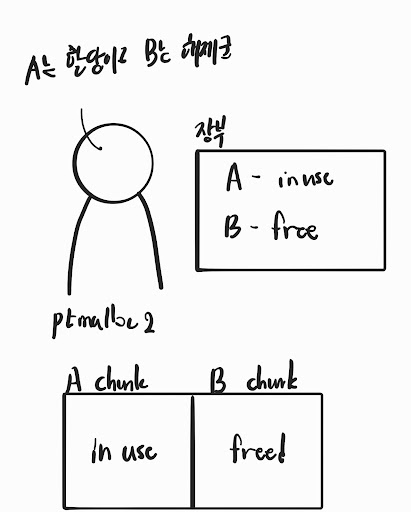 A는 할당이고 B는 해제군
장부
A - in use
B - free
ptmalloc2
A chunk B chunk
in use free!